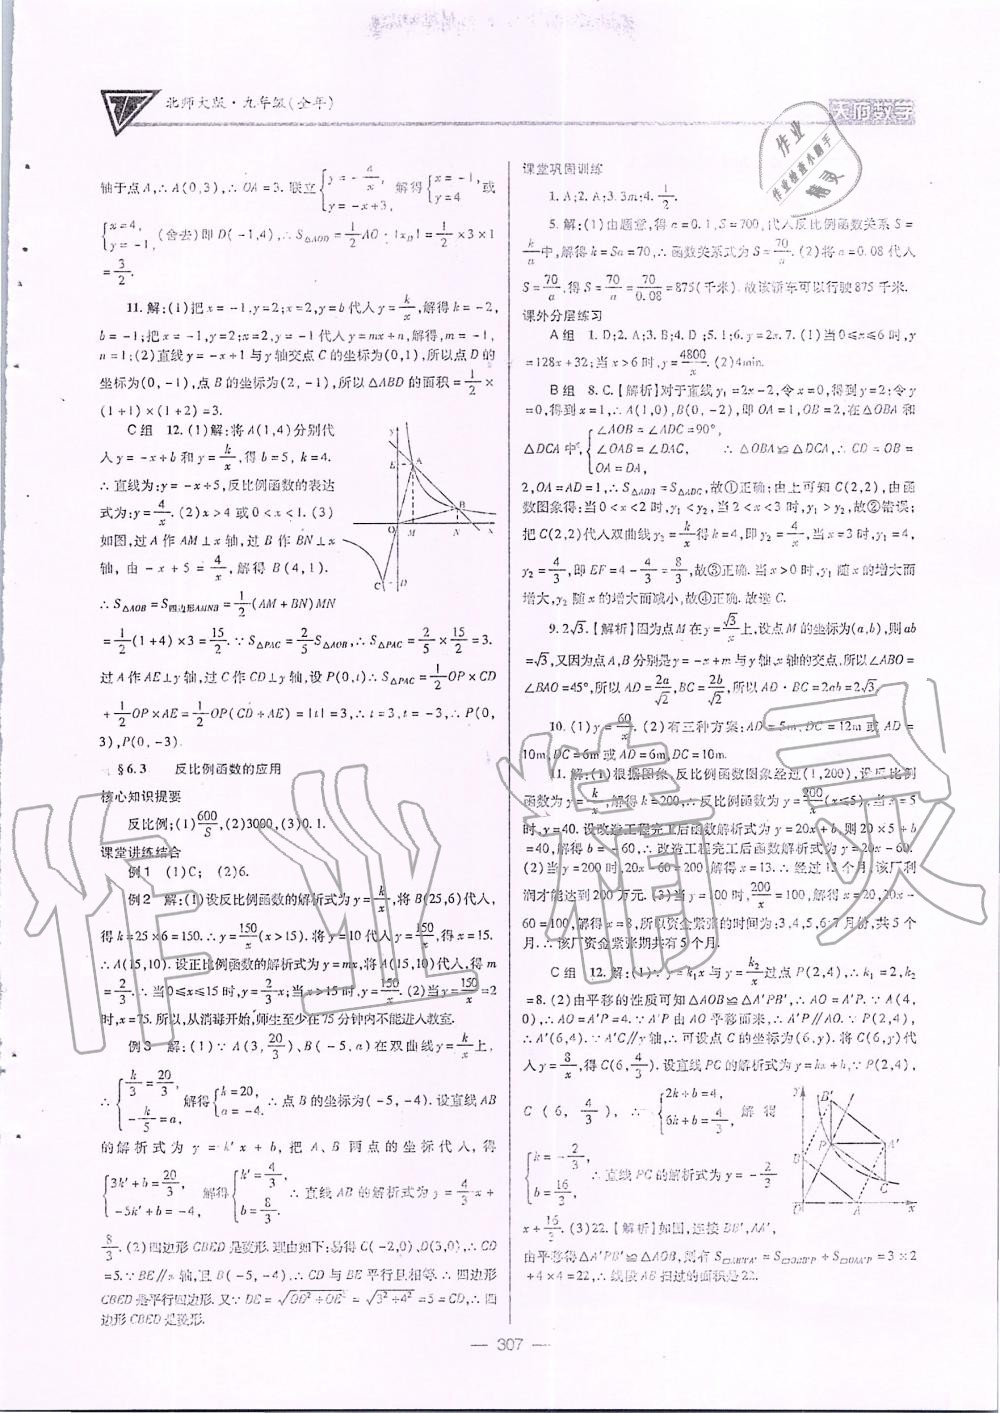 北师大版·九年级(全年)
天府数学
轴于点A,∴A(0,3),∴OA=3.联立{y=-4/x, y=-x+3, 解得{x=-1, y=4 或
{x=4, y=-1, (舍去)即D(-1,4),∴S△AOD=1/2 AO·|xD|=1/2×3×1
=3/2.
11.解:(1)把x=-1,y=2;x=2,y=b代入y=k/x,解得k=-2,
b=-1;把x=-1,y=2;x=2,y=-1代入y=mx+n,解得,m=-1,
n=1;(2)直线y=-x+1与y轴交点C的坐标为(0,1),所以点D的
坐标为(0,-1),点B的坐标为(2,-1),所以△ABD的面积=1/2×
(1+1)×(1+2)=3.
C组 12.(1)解:将A(1,4)分别代
入y=-x+b和y=k/x,得b=5,k=4.
∴直线为:y=-x+5,反比例函数的表达
式为:y=4/x.(2)x>4或0<x<1.(3)
如图,过A作AM⊥x轴,过B作BN⊥x
轴,由-x+5=4/x,解得B(4,1).
∴S△AOB=S四边形AMNB=1/2(AM+BN)MN
=1/2(1+4)×3=15/2.∵S△PAC=2/5 S△AOB,∴S△PAC=2/5×15/2=3.
过A作AE⊥y轴,过C作CD⊥y轴,设P(0,t)∴S△PAC=1/2 OP×CD
+1/2 OP×AE=1/2 OP(CD+AE)=|t|=3,∴t=3,t=-3,∴P(0,
3),P(0,-3).
§6.3 反比例函数的应用
核心知识提要
反比例;(1)600/S,(2)3000,(3)0.1.
课堂讲练结合
例1 (1)C; (2)6.
例2 解:(1)设反比例函数的解析式为y=k/x,将B(25,6)代入,
得k=25×6=150.∴y=150/x(x>15).将y=10代入y=150/x,得x=15.
∴A(15,10).设正比例函数的解析式为y=mx,将A(15,10)代入,得m=
2/3.∴当0≤x≤15时,y=2/3 x;当x>15时,y=150/x.(2)当y=150/x=2
时,x=75.所以,从消毒开始,师生至少在75分钟内不能进入教室.
例3 解:(1)∵A(3,20/3),B(-5,a)在双曲线y=k/x上,
∴{k/3=20/3, -k/5=a, 解得{k=20, a=-4. ∴点B的坐标为(-5,-4).设直线AB
的解析式为y=k'x+b,把A、B两点的坐标代入,得
{3k'+b=20/3, -5k'+b=-4, 解得{k'=4/3, b=8/3. ∴直线AB的解析式为y=4/3 x+
8/3.(2)四边形CBED是菱形.理由如下:易得C(-2,0),D(3,0),∴CD
=5.∵BE∥x轴,且B(-5,-4),∴CD与BE平行且相等.∴四边形
CBED是平行四边形.又∵DE=√(OD²+OE²)=√(3²+4²)=5=CD,∴四
边形CBED是菱形.
课堂巩固训练
1.A;2.A;3.3m;4.1/2.
5.解:(1)由题意,得a=0.1,S=700,代入反比例函数关系S=
k/a中,解得k=Sa=70,∴函数关系式为S=70/a.(2)将a=0.08代入
S=70/a,得S=70/a=70/0.08=875(千米).故该轿车可以行驶875千米.
课外分层练习
A组 1.D;2.A;3.B;4.D;5.1;6.y=2x.7.(1)当0≤x≤6时,
y=128x+32;当x>6时,y=4800/x.(2)4min.
B组 8.C.【解析】对于直线y₁=2x-2,令x=0,得到y=2;令y
=0,得到x=1,∴A(1,0),B(0,-2),即OA=1,OB=2,在△OBA和
△DCA中,{∠AOB=∠ADC=90°, ∠OAB=∠DAC, OA=DA, ∴△OBA≌△DCA,∴CD=OB=
2,OA=AD=1,∴S△ADB=S△ADC,故①正确;由上可知C(2,2),由函
数图象得:当0<x<2时,y₁<y₂,当2<x<3时,y₁>y₂,故②错误;
把C(2,2)代入双曲线y₂=k/x得k=4,即y₂=4/x,当x=3时,y₁=4,
y₂=4/3,即EF=4-4/3=8/3,故③正确.当x>0时,y₁随x的增大而
增大,y₂随x的增大而减小,故④正确.故选C.
9.2√3.【解析】因为点M在y=√3/x上,设点M的坐标为(a,b),则ab
=√3,又因为点A,B分别是y=-x+m与y轴,x轴的交点,所以∠ABO=
∠BAO=45°,所以AD=2a/√2,BC=2b/√2,所以AD·BC=2ab=2√3.
10.(1)y=60/x.(2)有三种方案:AD=5m,DC=12m或AD=
10m,DC=6m或AD=6m,DC=10m.
11.解:(1)根据图象,反比例函数图象经过(1,200),设反比例
函数为y=k/x,解得k=200,∴反比例函数为y=200/x(x≤5),当x=5
时,y=40.设改造工程完工后函数解析式为y=20x+b,则20×5+b
=40,解得b=-60,∴改造工程完工后函数解析式为y=20x-60.
(2)当y=200时,20x-60=200,解得x=13.∴经过13个月,该厂利
润才能达到200万元.(3)当y=100时,200/x=100,解得x=20,20x-
60=100,解得x=8,所以资金紧张的时间为:3,4,5,6,7月份,共5个
月.∴该厂资金紧张期共有5个月.
C组 12.解:(1)∵y=k₁x与y=k₂/x过点P(2,4),∴k₁=2,k₂
=8.(2)由平移的性质可知△AOB≌△A'PB',∴AO=A'P.∵A(4,
0),∴AO=A'P=4.∵A'P由AO平移而来,∴A'P∥AO.∵P(2,4),
∴A'(6,4).∵A'C∥y轴,∴可设点C的坐标为(6,y).将C(6,y)代
入y=8/x,得C(6,4/3).设直线PC的解析式为y=kx+b,∵P(2,4),
C(6,4/3),∴{2k+b=4, 6k+b=4/3, 解得
{k=-2/3, b=16/3, ∴直线PC的解析式为y=-2/3
x+16/3.(3)22.【解析】如图,连接BB',AA',
由平移得△A'PB'≌△AOB,则有S□ABB'A'=S□OBB'P+S□OAA'P=3×2
+4×4=22,∴线段AB扫过的面积是22.
— 307 —
作业精灵